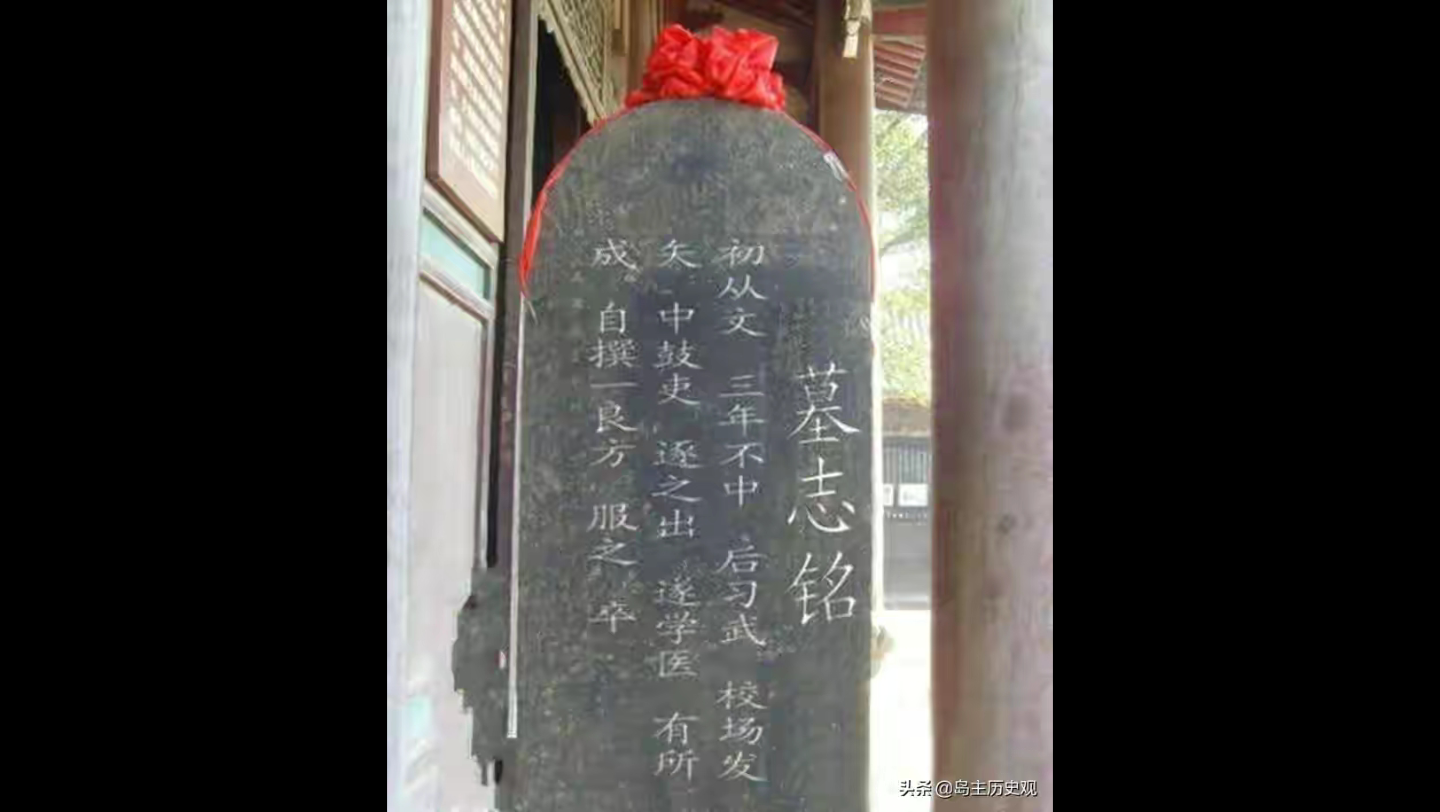 墓志铭
初从文 三年不中 后习武 校场发
矢 中鼓吏 逐之出 遂学医 有所
成 自撰一良方 服之 卒
头条 @岛主历史观